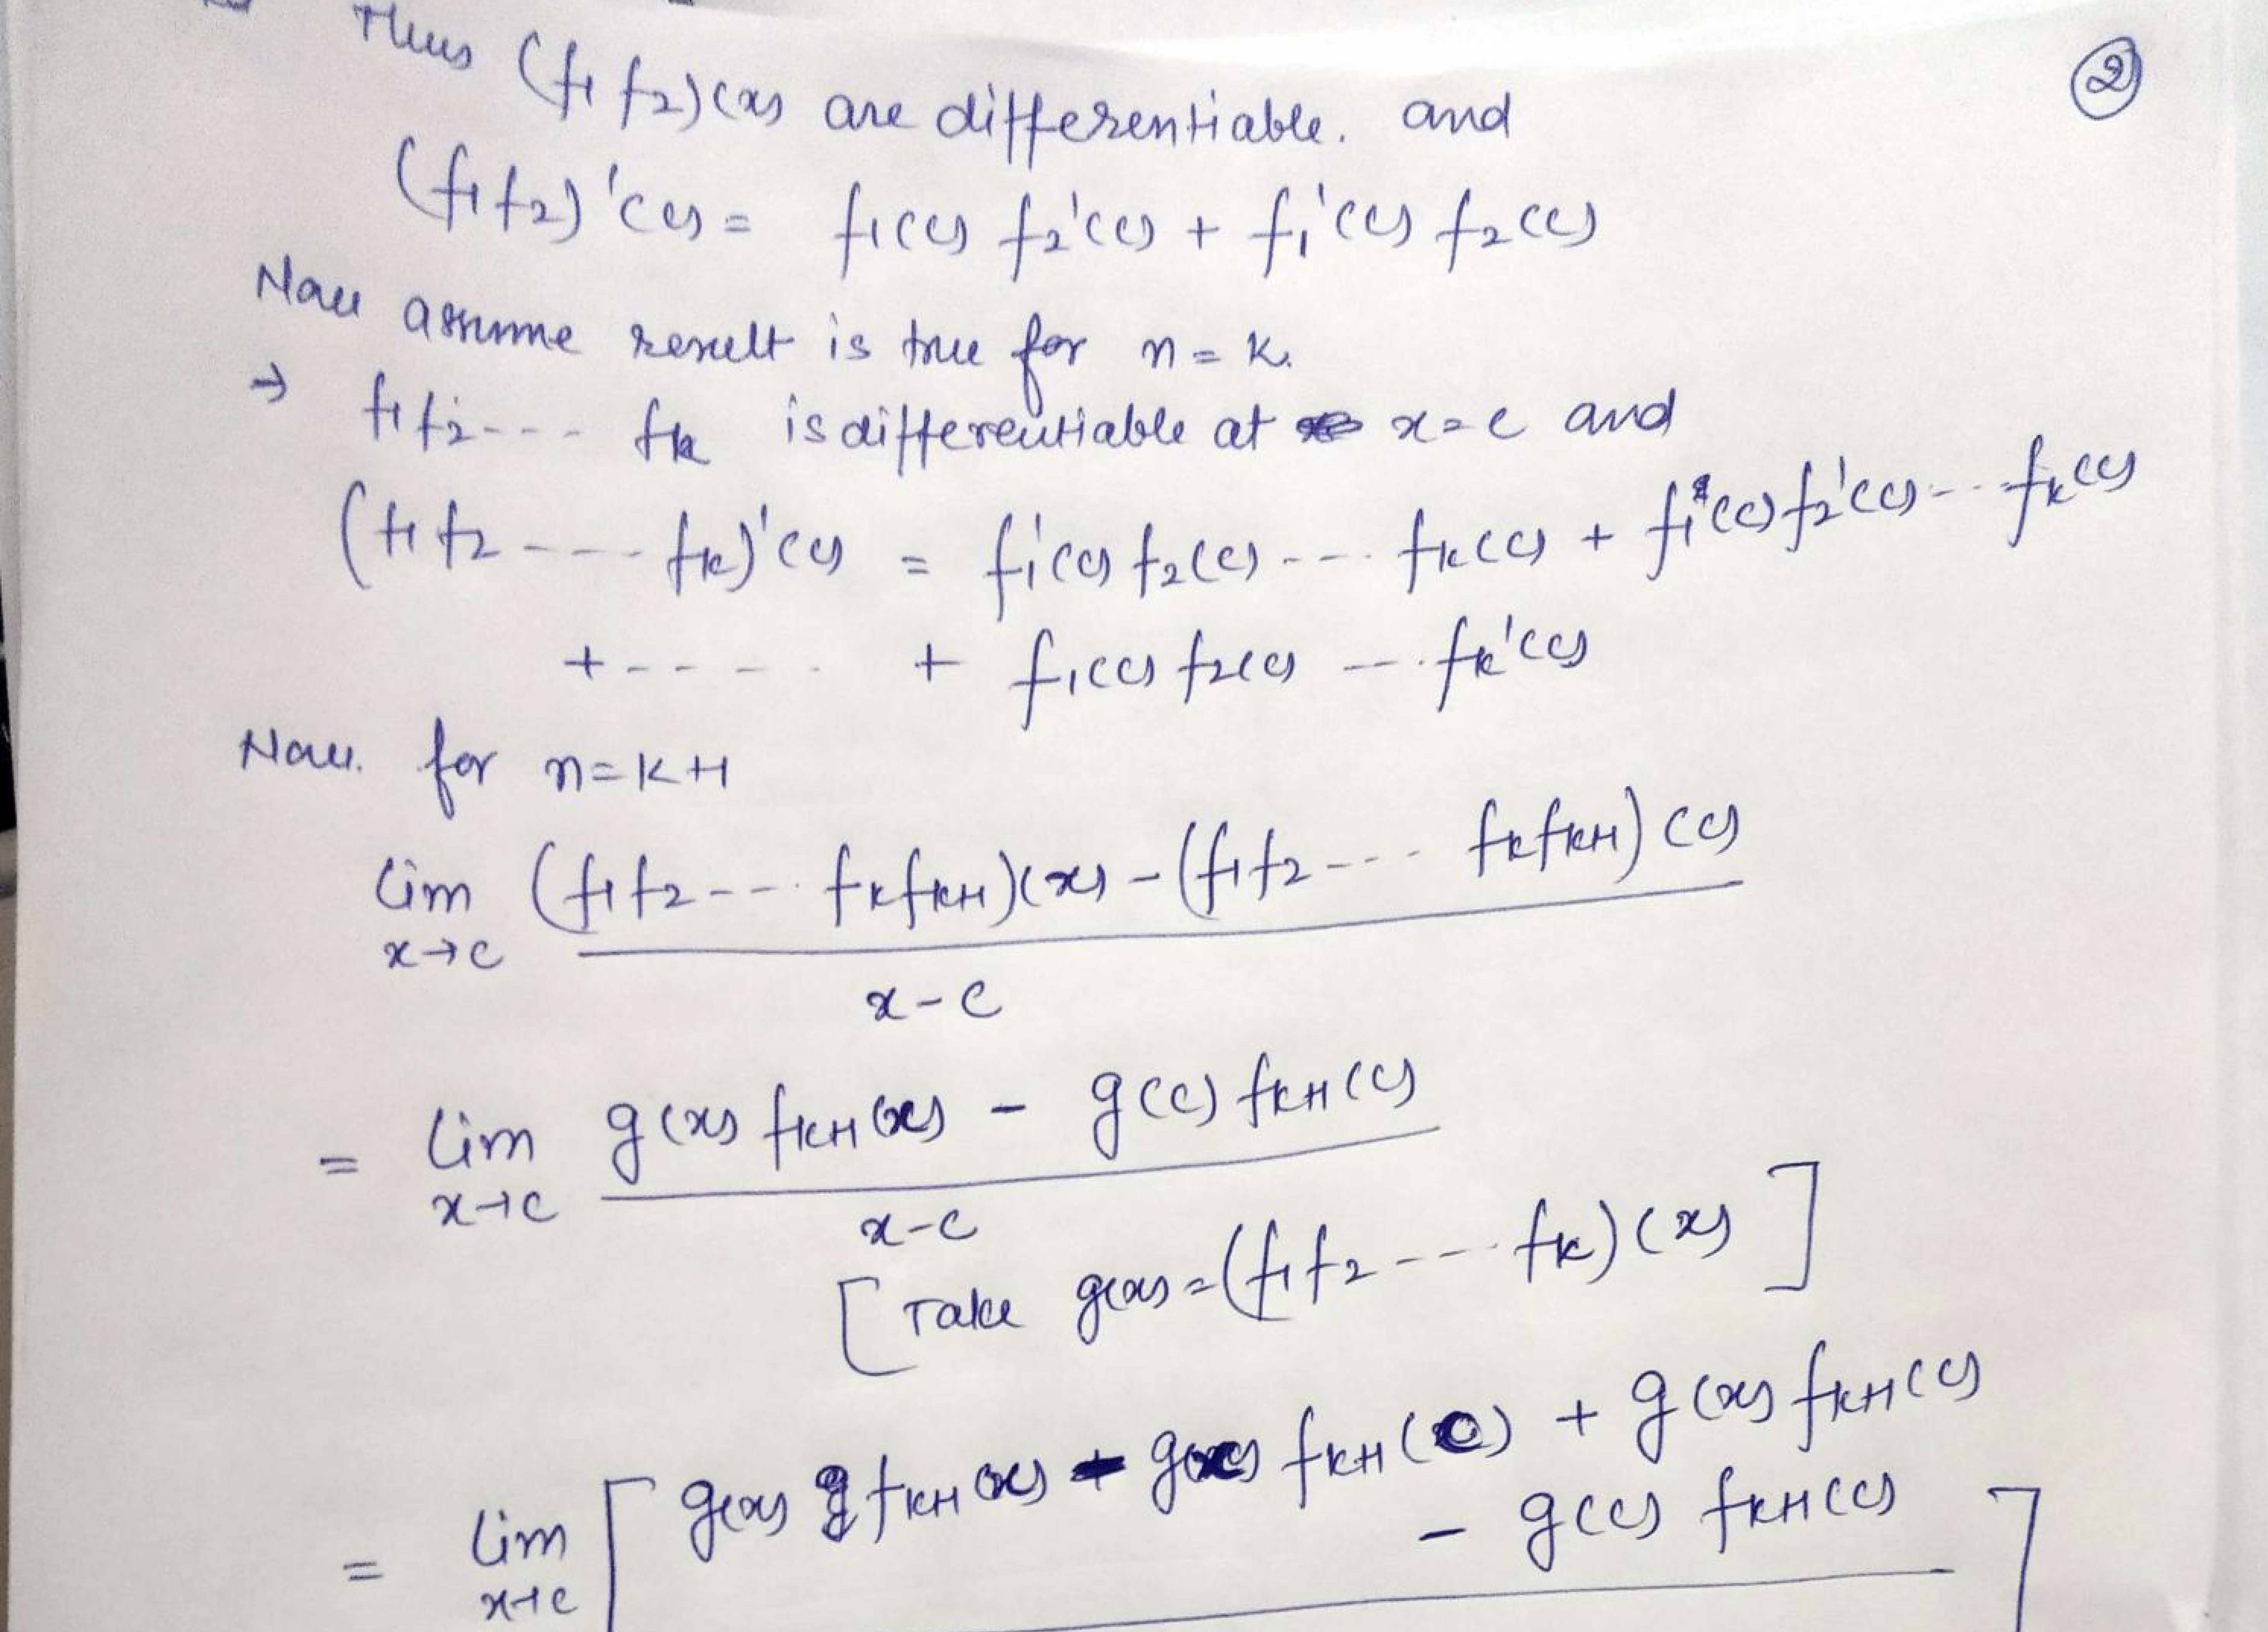 Thus (f1 f2)(x) are differentiable. and
②
(f1 f2)'(c) = f1(c) f2'(c) + f1'(c) f2(c)
Now assume result is true for n = k.
→ f1 f2 --- fk is differentiable at x = c and
(f1 f2 ---- fk)'(c) = f1'(c) f2(c) --- fk(c) + f1(c) f2'(c) --- fk(c)
+ ---- + f1(c) f2(c) --- fk'(c)
Now. for n = k+1
lim (f1 f2 --- fk fk+1)(x) - (f1 f2 --- fk fk+1)(c)
x→c
x-c
= lim g(x) fk+1(x) - g(c) fk+1(c)
x→c
x-c
[Take g(x) = (f1 f2 --- fk)(x)]
= lim [ g(x) fk+1(x) - g(x) fk+1(c) + g(x) fk+1(c)
x→c
- g(c) fk+1(c) ]